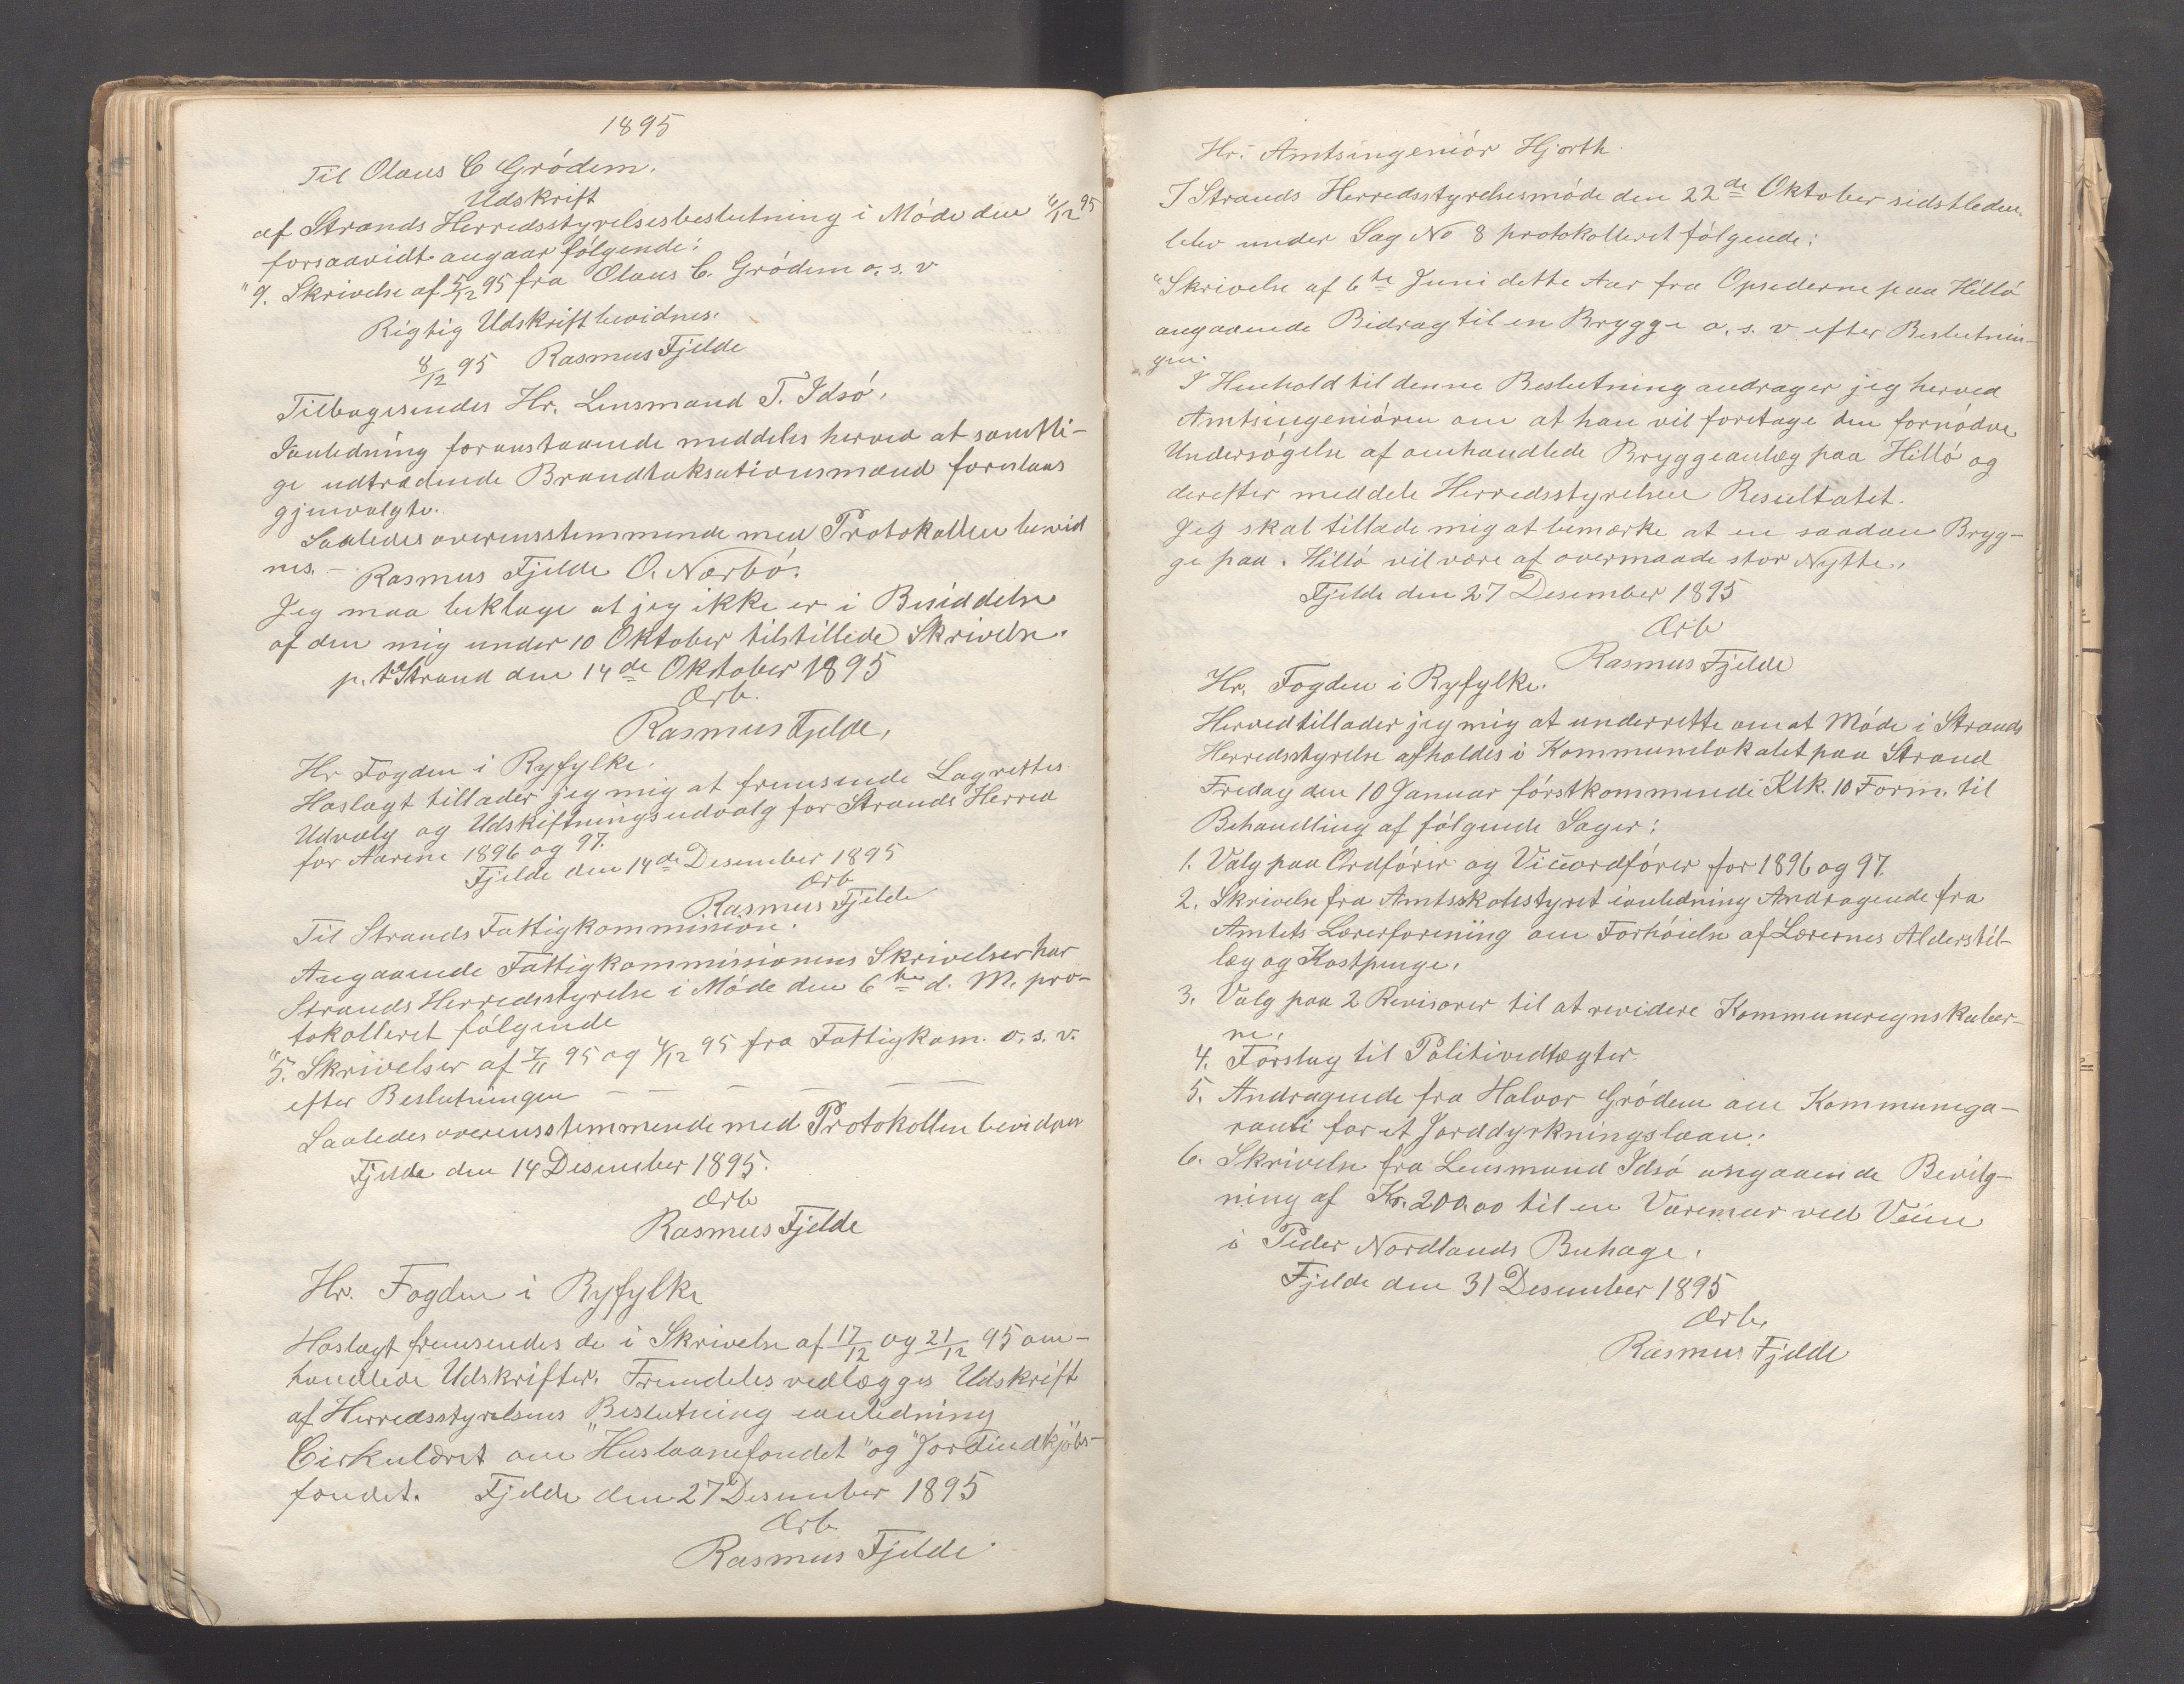 1895
Til Olaus C Grödem.
Udskrift
af Strands Herredsstyrelsesbeslutning i Möde den 6/12 95
forsaavidt angaar fölgende:
"9. Skrivelse af 5/12 95 fra Olaus C. Grödem o. s. v
Rigtig Udskrift bevidnes.
8/12 95 Rasmus Fjelde
Tilbagesendes Hr. Lensmand T. Idsö.
Ianledning foranstaaende meddeles herved at samtli-
ge udtrædende Brandtaksationsmænd foreslaaes
gjenvalgte.
Saaledes overensstemmende med Protokollen bevid
nes. - Rasmus Fjelde O. Nærbö.
Jeg maa beklage at jeg ikke er i Besiddelse
af den mig under 10 Oktober tilstillede Skrivelse.
p. t. Strand den 14de Oktober 1895
Ærb.
Rasmus Fjelde,
Hr Fogden i Ryfylke.
Hoslagt tillader jeg mig at fremsende Lagrettes
Udvalg og Udskiftningsudvalg for Strands Herred
for Aarene 1896 og 97.
Fjelde den 14de Desember 1895
Ærb
Rasmus Fjelde
Til Strands Fattigkommission.
Angaaende Fattigkommissionens Skrivelser har
Strands Herredsstyrelse i Möde den 6te d. M. pro-
tokolleret fölgende
"5. Skrivelser af 7/11 95 og 4/12 95 fra Fattigkom. o. s. v.
efter Beslutningen — — — — —
Saaledes overensstemmende med Protokollen bevidnes
Fjelde den 14 Desember 1895.
Ærb
Rasmus Fjelde
Hr. Fogden i Ryfylke
Hoslagt fremsendes de i Skrivelse af 17/12 og 21/12 95 om-
handlede Udskrifter. Fremdeles vedlægges Udskrift
af Herredsstyrelsens Beslutning ianledning
Cirkulæret om "Huslaanefondet" og "Jordindkjöbs-
fondet. Fjelde den 27 Desember 1895
Ærb
Rasmus Fjelde.
Hr. Amtsingeniör Hjorth.
I Strands Herredsstyrelsesmöde den 22de Oktober sidstleden
blev under Sag No 8 protokolleret fölgende:
"Skrivelse af 6te Juni dette Aar fra Opsiderne paa Hillö
angaaende Bidrag til en Brygge o. s. v. efter Beslutnin-
gen.
I Henhold til denne Beslutning andrager jeg herved
Amtsingeniören om at han vil foretage den fornödne
Undersögelse af omhandlede Bryggeanlæg paa Hillö og
derefter meddele Herredsstyrelsen Resultatet.
Jeg skal tillade mig at bemærke at en saadan Bryg-
ge paa Hillö vil være af overmaade stor Nytte.
Fjelde den 27 Desember 1895
Ærb
Rasmus Fjelde
Hr. Fogden i Ryfylke.
Herved tillader jeg mig at underrette om at Möde i Strands
Herredsstyrelse afholdes i Kommunelokalet paa Strand
Fredag den 10 Januar förstkommende Klk. 10 Form. til
Behandling af fölgende Sager:
1. Valg paa Ordförer og Viceordförer for 1896 og 97.
2. Skrivelse fra Amtsskolestyret ianledning Andragende fra
Amtets Lærerforening om Forhöielse af Lærernes Alderstil-
læg og Kostpenge.
3. Valg paa 2 Revisorer til at revidere Kommuneregnskaber-
ne.
4. Forslag til Politivedtægter.
5. Andragende fra Halvor Grödem om Kommunega-
ranti for et Jorddyrkningslaan.
6. Skrivelse fra Lensmand Idsö angaaende Bevilg-
ning af Kr. 200.00 til en Varemur ved Veien
i Peder Nordlands Buhage.
Fjelde den 31 Desember 1895
Ærb.
Rasmus Fjelde